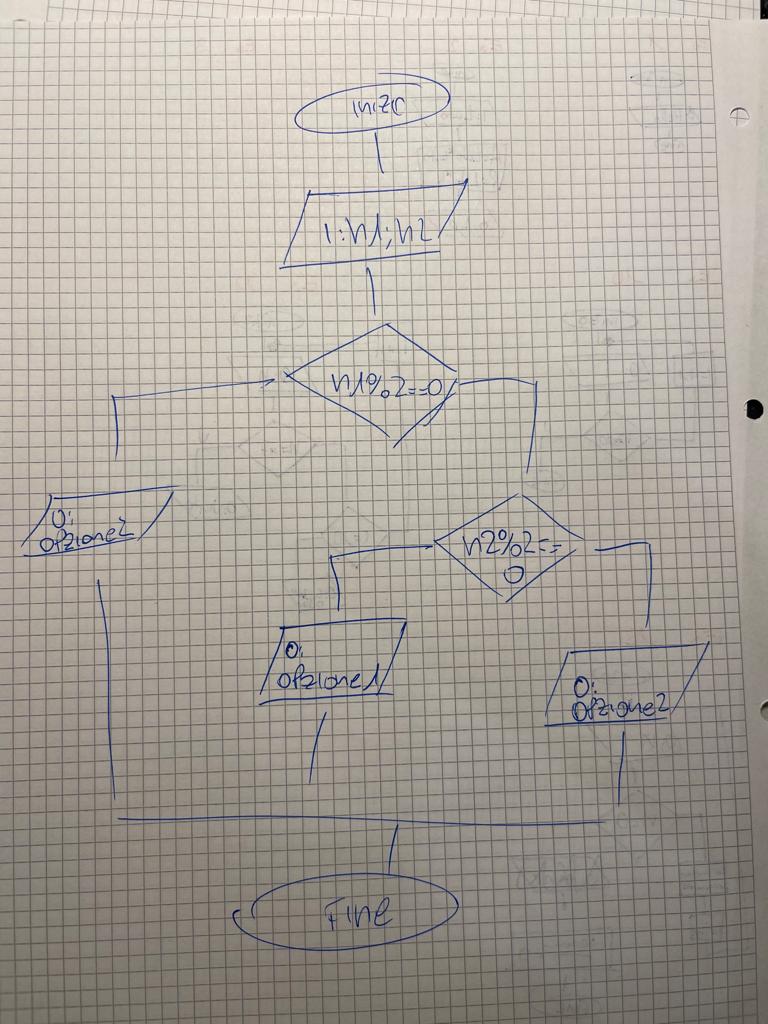 inizo
I:n1;n2
n1%2==0
O:
opzione2
n2%2==
0
O:
opzione1
O:
opzione2
Fine